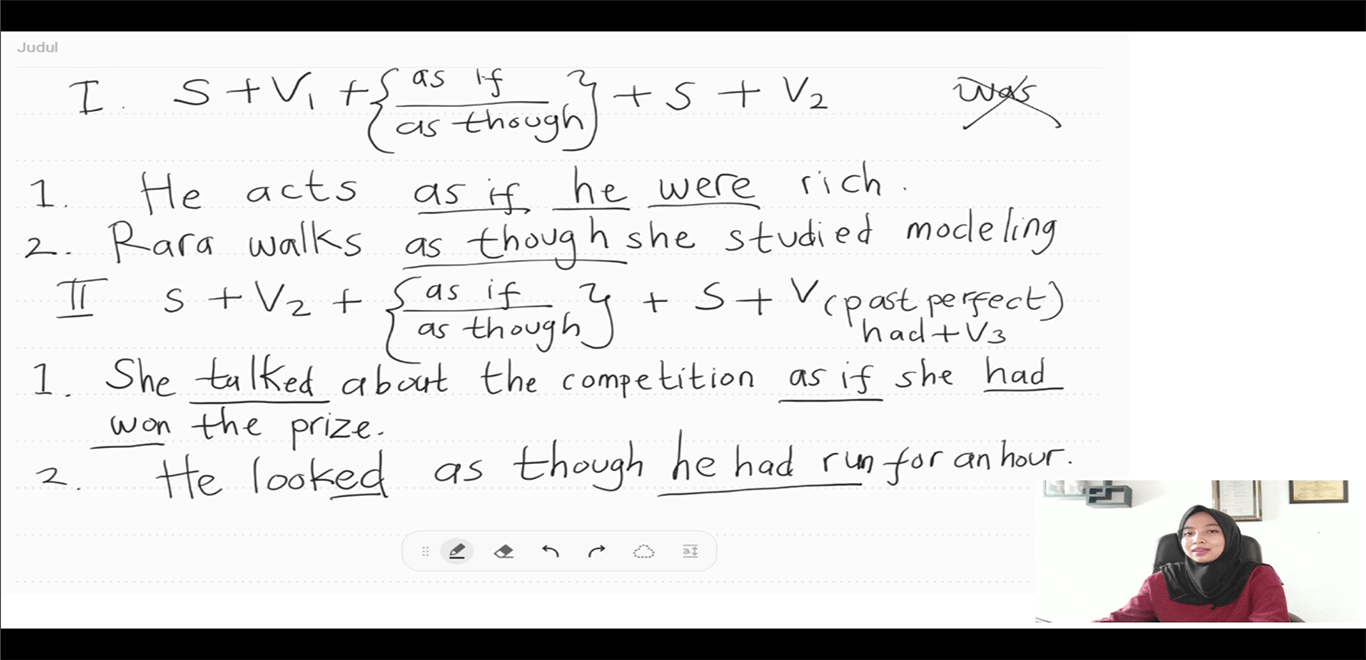 Judul
I. S + V1 + { as if / as though } + S + V2 was
1. He acts as if he were rich.
2. Rara walks as though she studied modeling
II S + V2 + { as if / as though } + S + V (past perfect)
had + V3
1. She talked about the competition as if she had
won the prize.
2. He looked as though he had run for an hour.